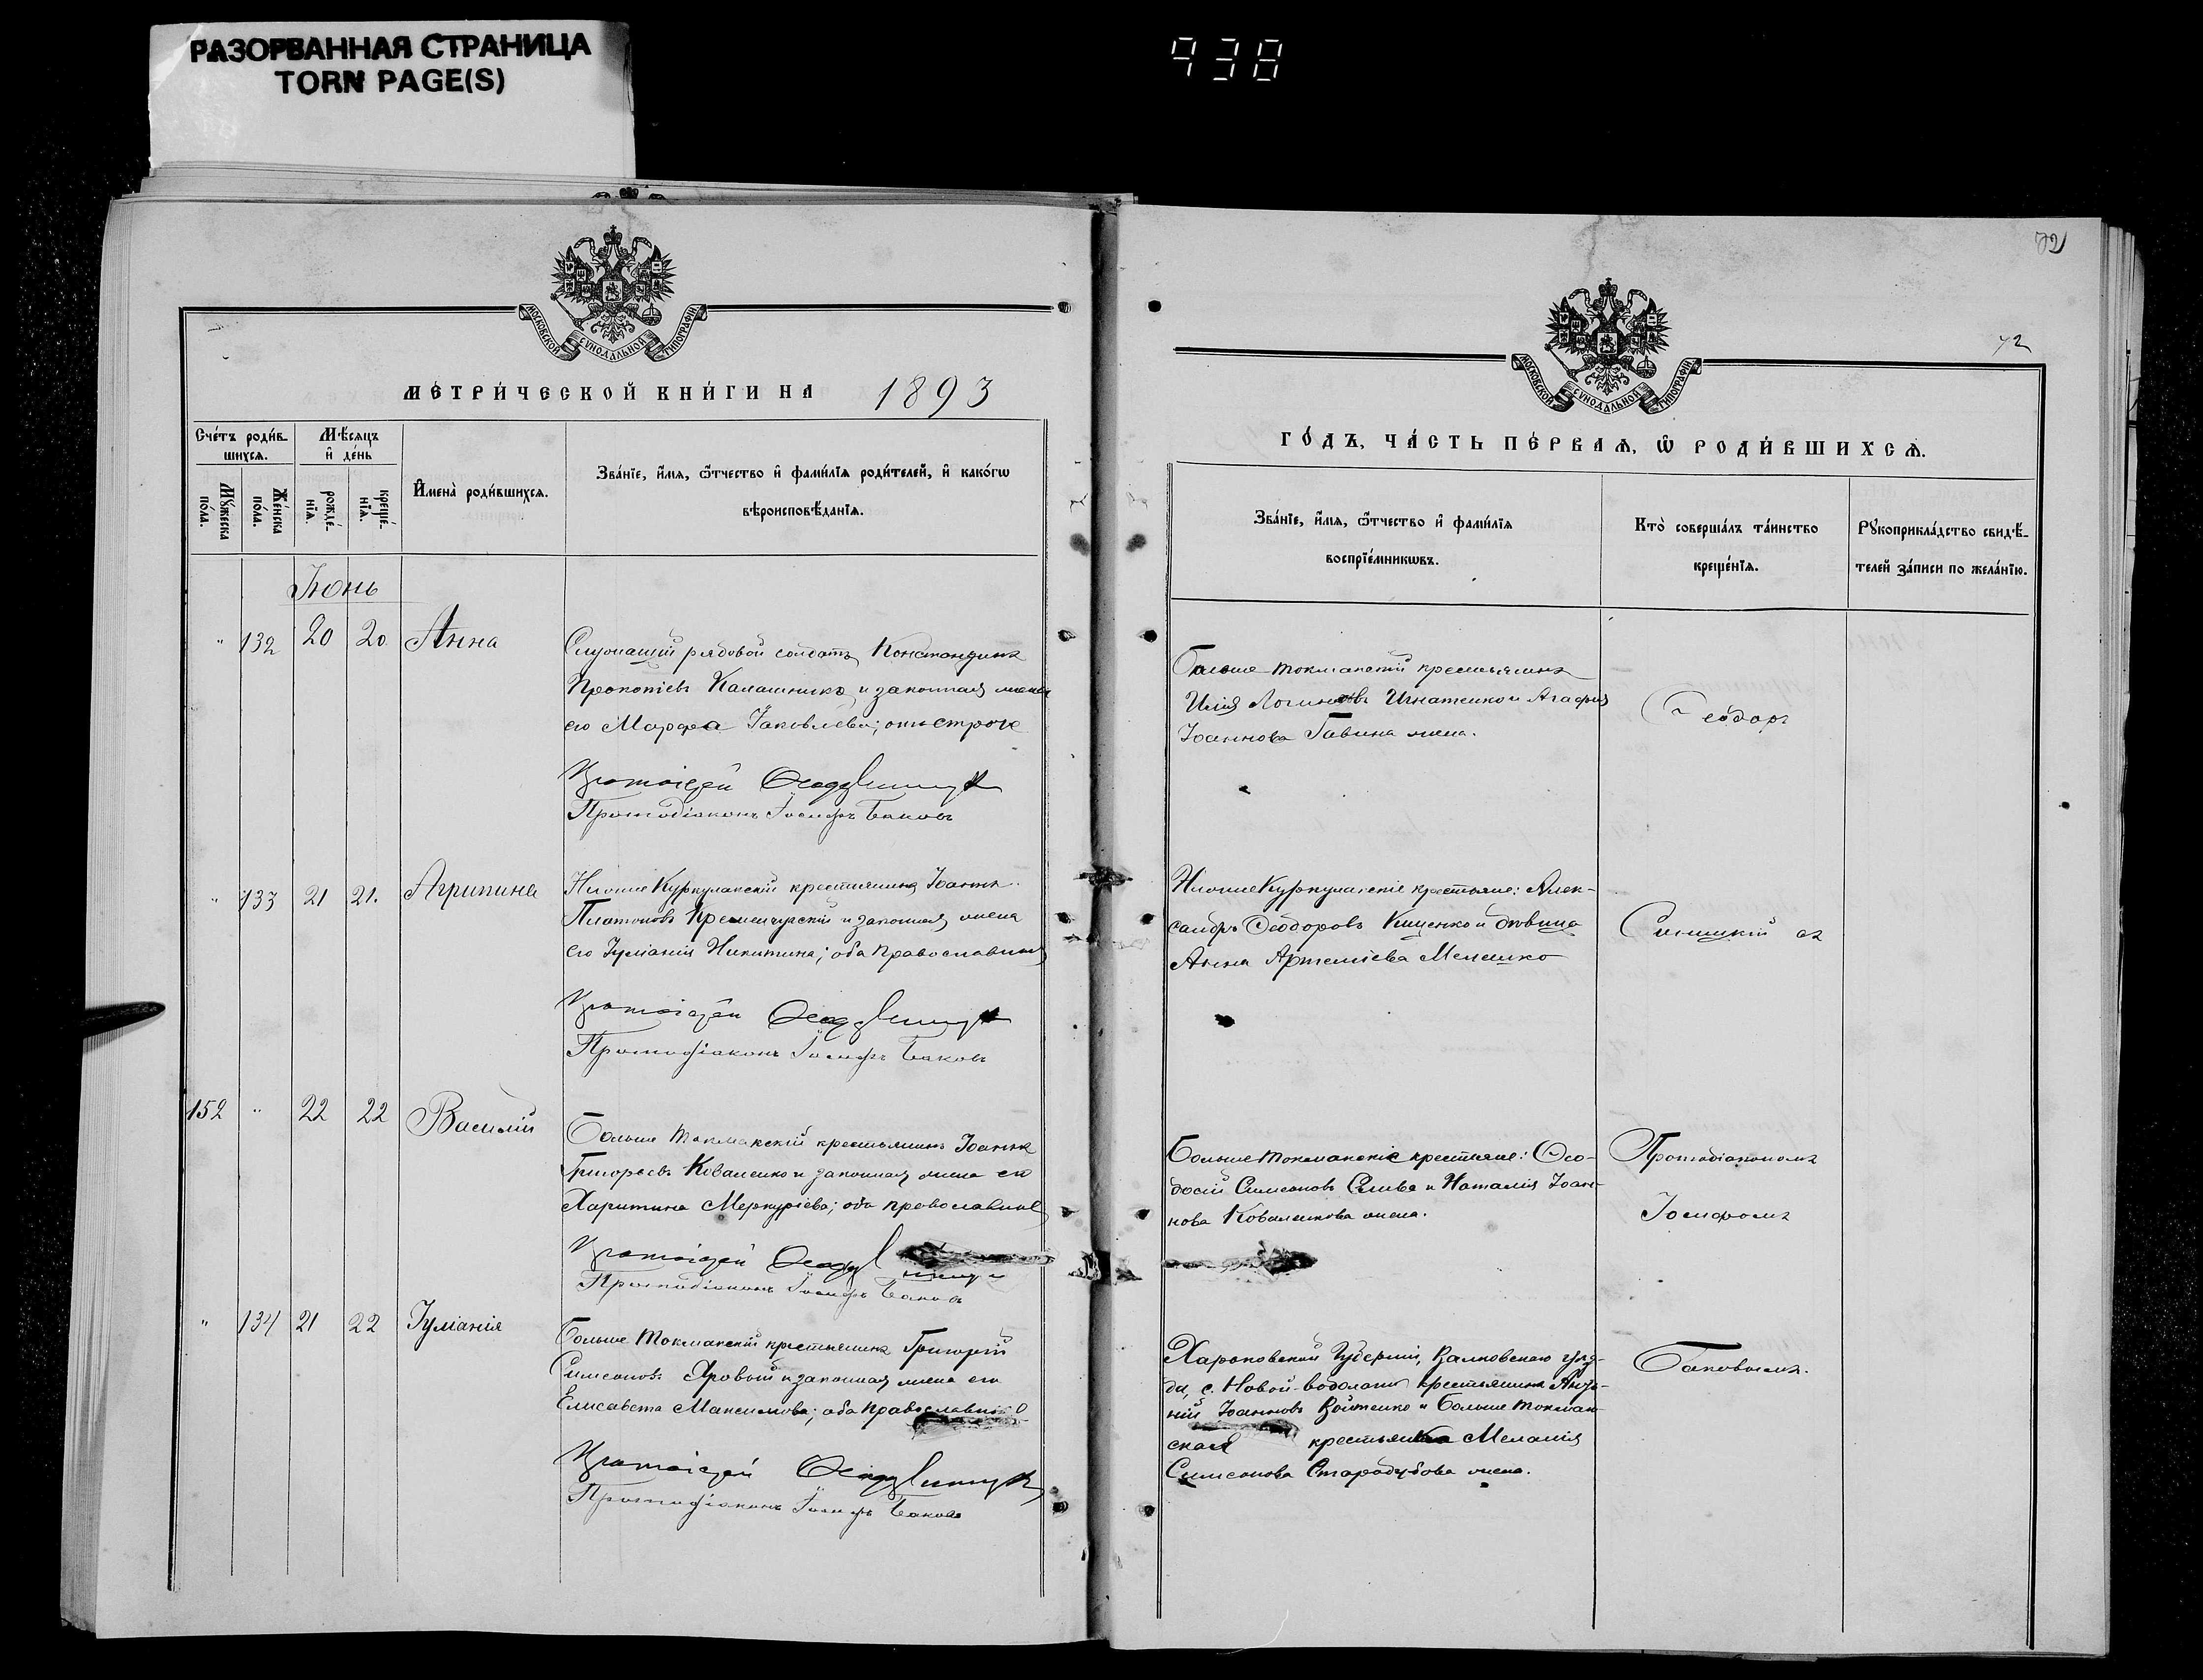 РАЗОРВАННАЯ СТРАНИЦА
TORN PAGE(S)
938
72
72
МОСКОВСКОЙ СУНОДАЛЬНОЙ ТИПОГРАФІИ
МЕТРИ́ЧЕСКОЙ КНИ́ГИ НА 1893
Сче́тъ роди́в-
шихсѧ.
Мѣ́сѧцъ
и҆ де́нь
Мꙋ́жеска
по́ла.
Же́нска
по́ла.
рожде́-
нїѧ.
креще́-
нїѧ.
И҆мена̀ роди́вшихсѧ.
Зва́нїе, и҆́мѧ, ѻ҆́тчество и҆ фами́лїѧ роди́телей, и҆ како́гѡ
вѣроисповѣ́данїѧ.
Іюнь
" 132 20 20 Анна
Служащій рядовой солдатъ Константинъ
Прокопіевъ Калашникъ и законная жена
его Марфа Іаковлева;
Протоіерей
Протодіаконъ Іосифъ Баковъ
" 133 21 21. Агрипина
Нижне Куркулакскій крестьянинъ Іоаннъ
Платоновъ Кременчугскій и законная жена
его Іуліанія Никитина; оба православныя
Протоіерей
Протодіаконъ Іосифъ Баковъ
152 " 22 22 Василій
Больше Токмакскій крестьянинъ Іоаннъ
Григорьевъ Коваленко и законная жена его
Харитина Меркуріева; оба православные
Протоіерей
Протодіаконъ Іосифъ Баковъ
" 134 21 22 Іуліанія
Больше Токмакскій крестьянинъ Григорій
Симеоновъ Яровый и законная жена его
Елисавета Максимова; оба православные
Протоіерей
Протодіаконъ Іосифъ Баковъ
МОСКОВСКОЙ СУНОДАЛЬНОЙ ТИПОГРАФІИ
ГО́ДЪ, ЧА́СТЬ ПЕ́РВАѦ, Ѡ҆ РОДИ́ВШИХСѦ.
Зва́нїе, и҆́мѧ, ѻ҆́тчество и҆ фами́лїѧ
воспрїе́мникѡвъ.
Кто̀ соверша́лъ та́инство
креще́нїѧ.
Рꙋкоприкла́дство свидѣ́-
телей за́писи по жела́нїю.
Больше Токмакскій крестьянинъ
Илія Логиновъ Игнатенко и Агафія
Іоаннова Гавина жена.
Ѳеодоръ
Нижне Куркулакскіе крестьяне: Алек-
сандръ Ѳеодоровъ Кищенко и дѣвица
Анна Артеміева Мелешко
Синицкій съ
Больше Токмакскіе крестьяне: Ѳео-
досій Симеоновъ Слива и Наталія Іоан-
нова Коваленкова жена.
Протодіакономъ
Іосифомъ
Харьковской Губерніи, Валковскаго уѣз-
да, с. Новой-водолаги крестьянинъ
Іоанновъ Войтенко и Больше Токмак-
ская крестьянка Меланія
Симеонова Стародубова жена.
Баковымъ.